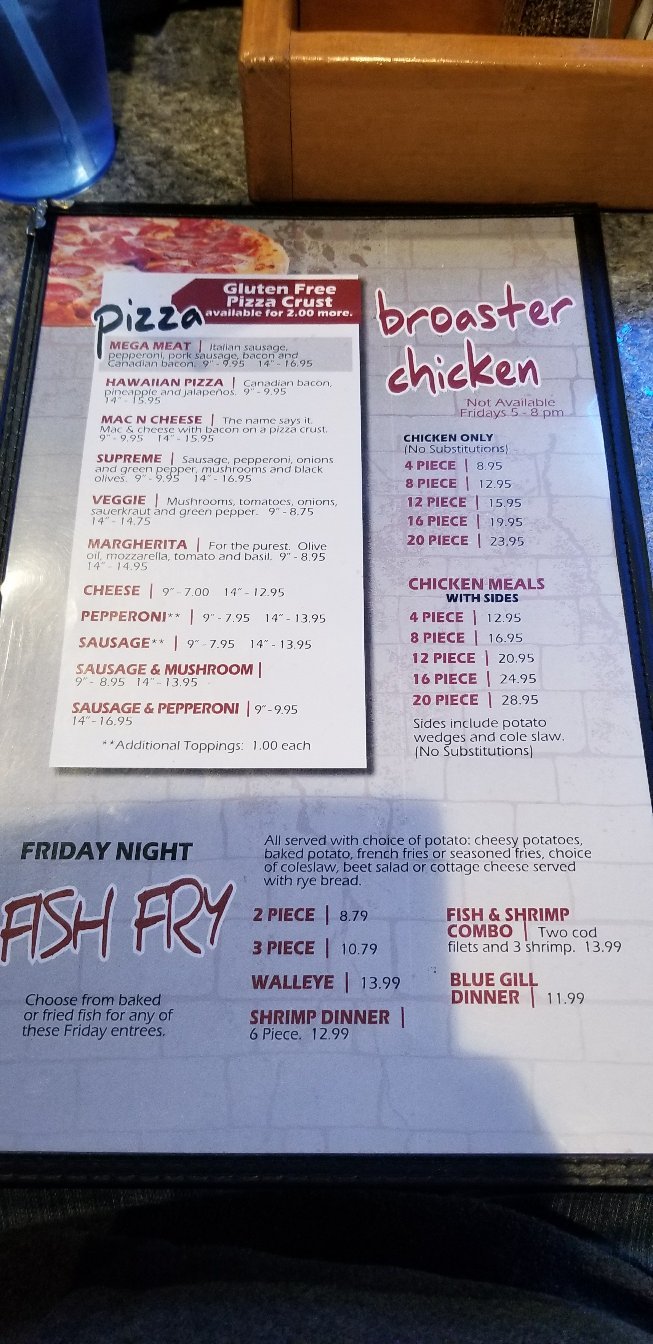 Gluten Free
Pizza Crust
available for 2.00 more.
pizza
MEGA MEAT | Italian sausage,
pepperoni, pork sausage, bacon and
Canadian bacon. 9" - 9.95 14" - 16.95
HAWAIIAN PIZZA | Canadian bacon,
pineapple and jalapeños. 9" - 9.95
14" - 15.95
MAC N CHEESE | The name says it.
Mac & cheese with bacon on a pizza crust.
9" - 9.95 14" - 15.95
SUPREME | Sausage, pepperoni, onions
and green pepper, mushrooms and black
olives. 9" - 9.95 14" - 16.95
VEGGIE | Mushrooms, tomatoes, onions,
sauerkraut and green pepper. 9" - 8.75
14" - 14.75
MARGHERITA | For the purest. Olive
oil, mozzarella, tomato and basil. 9" - 8.95
14" - 14.95
CHEESE | 9" - 7.00 14" - 12.95
PEPPERONI** | 9" - 7.95 14" - 13.95
SAUSAGE** | 9" - 7.95 14" - 13.95
SAUSAGE & MUSHROOM |
9" - 8.95 14" - 13.95
SAUSAGE & PEPPERONI | 9" - 9.95
14" - 16.95
**Additional Toppings: 1.00 each
broaster
chicken
Not Available
Fridays 5 - 8 pm
CHICKEN ONLY
(No Substitutions)
4 PIECE | 8.95
8 PIECE | 12.95
12 PIECE | 15.95
16 PIECE | 19.95
20 PIECE | 23.95
CHICKEN MEALS
WITH SIDES
4 PIECE | 12.95
8 PIECE | 16.95
12 PIECE | 20.95
16 PIECE | 24.95
20 PIECE | 28.95
Sides include potato
wedges and cole slaw.
(No Substitutions)
FRIDAY NIGHT
FISH FRY
Choose from baked
or fried fish for any of
these Friday entrees.
All served with choice of potato: cheesy potatoes,
baked potato, french fries or seasoned fries, choice
of coleslaw, beet salad or cottage cheese served
with rye bread.
2 PIECE | 8.79
3 PIECE | 10.79
WALLEYE | 13.99
SHRIMP DINNER |
6 Piece. 12.99
FISH & SHRIMP
COMBO | Two cod
filets and 3 shrimp. 13.99
BLUE GILL
DINNER | 11.99